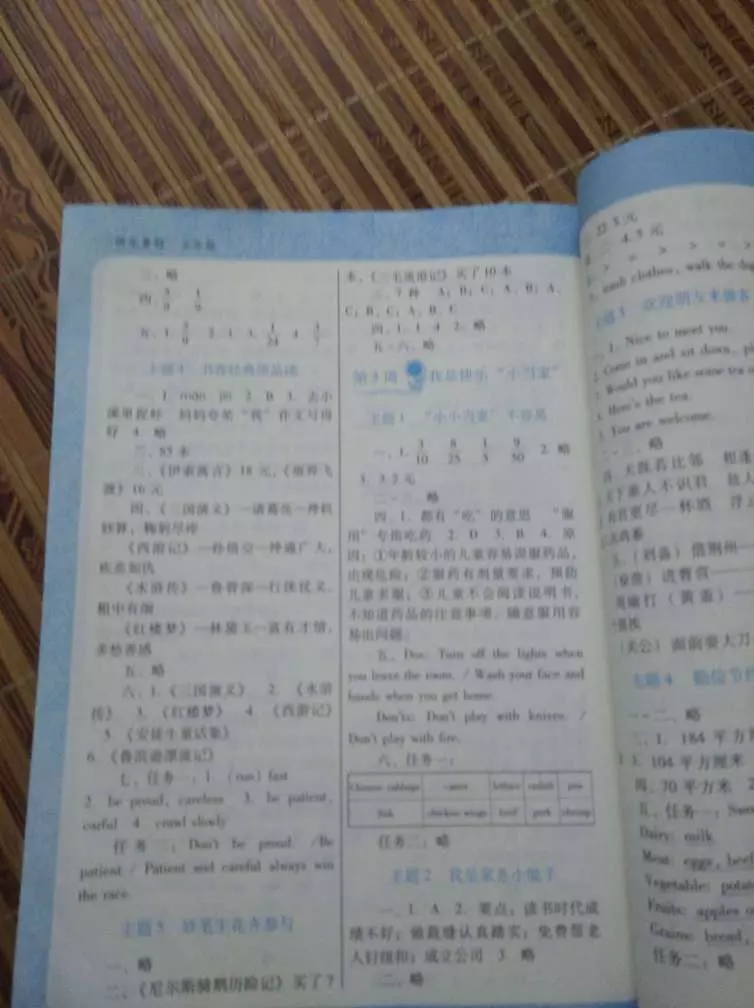 三、略
主题4 书香经典细品读
溪里捉虾 妈妈夸奖“我”作文写得
好 4. 略
二、85本
三、《伊索寓言》18元,《

渡》16元
四、《三国演义》—诸葛亮—神机
妙算,鞠躬尽瘁
《西游记》—孙悟空—神通广大,
疾恶如仇
《水浒传》—鲁智深—行侠仗义,
粗中有细
《红楼梦》—林黛玉—富有才情,
多愁善感
五、略
六、1.《三国演义》 2.《水浒
传》 3.《红楼梦》 4.《西游记》
5.《安徒生童话集》
6.《鲁滨逊漂流记》
七、任务一:1. (run) fast
2. be proud, careless 3. be patient,
carful 4. crawl slowly
任务二:Don't be proud. /Be
patient. / Patient and careful always win
the race.
主题5 妙笔生花齐参与
一、略
二、《尼尔斯骑鹅历险记》买了7
本,《三毛流浪记》买了10本
三、7种 A;B;C;A、B;A、
C;B、C;A、B、C
四、1. 1 4 2. 略
五~六、略
第5周 我是快乐“小当家”
主题1 “小小当家”不容易
一、1. 3/10 8/25 1/5 9/50 2. 略
3. 3.2元
二~三、略
四、1. 都有“吃”的意思 “服
用”专指吃药 2. D 3. B 4. 原
因:①年龄较小的儿童容易误服药品,
出现危险;②服药有剂量要求,预防
儿童多服;③儿童不会阅读说明书,
不知道药品的注意事项,随意服用容
易出问题。
五、Dos: Turn off the lights when
you leave the room. / Wash your face and
hands when you get home.
Don'ts: Don't play with knives. /
Don't play with fire.
六、任务一:
Chinese cabbage carrot lettuce radish pea
fish chicken wings beef pork shrimp
任务二:略
主题2 我是家务小能手
一、1. A 2. 要点:读书时代成
绩不好;做裁缝认真踏实;免费帮老
人钉纽扣;成立公司 3. 略
二、略
22.5元
4.5元
wash clothes, walk the dog
主题3 欢迎朋友来做客
1. Nice to meet you.
2. Come in and sit down,
3. Would you like some tea
4. Here's the tea.
5. You are welcome.
二、略
天涯若比邻 相逢
天下谁人不识君 故人
劝君更尽一杯酒
五、(刘备)借荆州—
进曹营—
周瑜打(黄盖)—
(关公)面前耍大刀
主题4 勤俭节约
一~二、略
三、1. 184平方
3. 104平方厘米
四、70平方米
五、任务一:
Dairy: milk
Meat: eggs, beef
Vegetable:
Fruits: apples
Grains: bread,
任务二:略